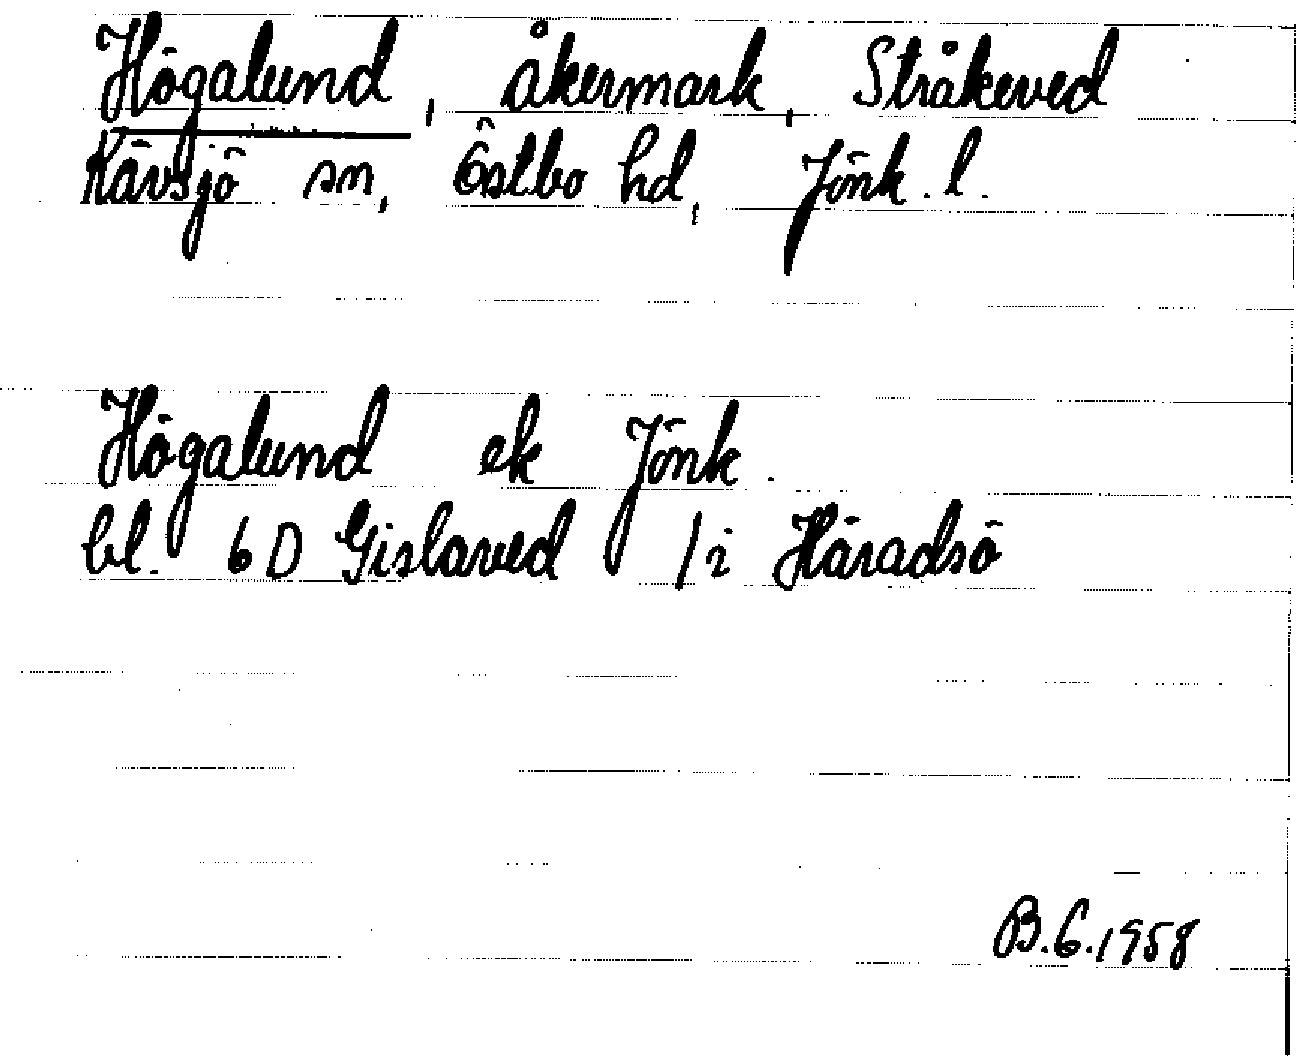 Högalund, åkermark, Stråkeved
Kävsjö sn, Östbo hd, Jönk. l.
Högalund ek Jönk.
bl. 6 D Gislaved / i Häradsö
B.G. 1958